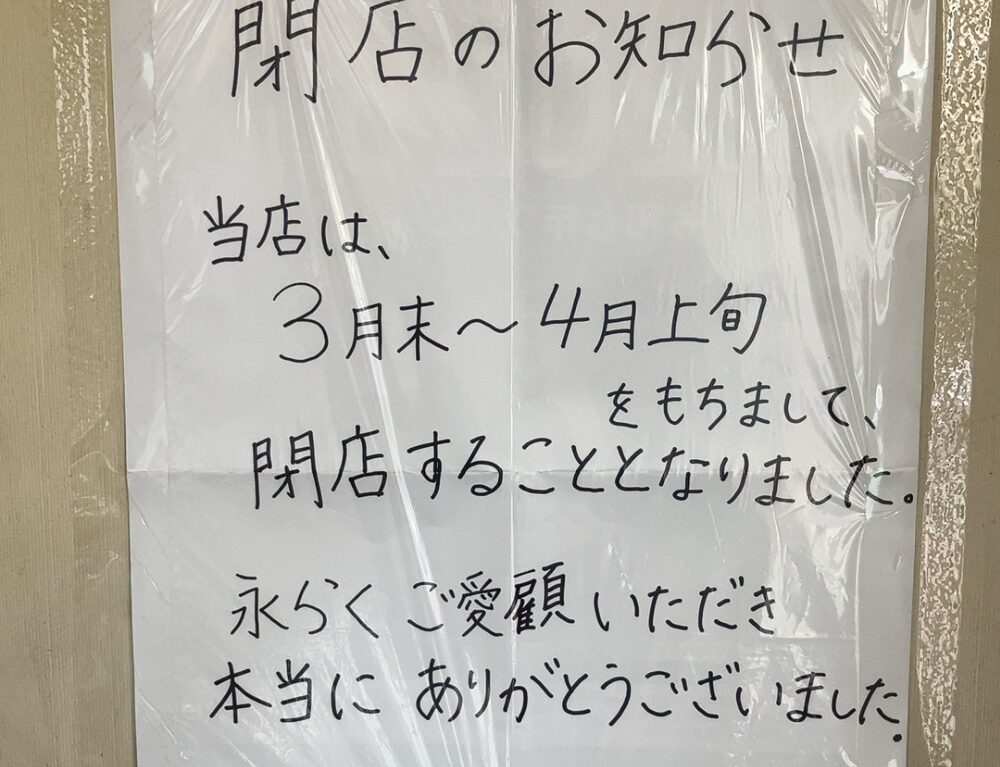 閉店のお知らせ
当店は、
3月末〜4月上旬
をもちまして、
閉店することとなりました。
永らくご愛顧いただき
本当にありがとうございました.